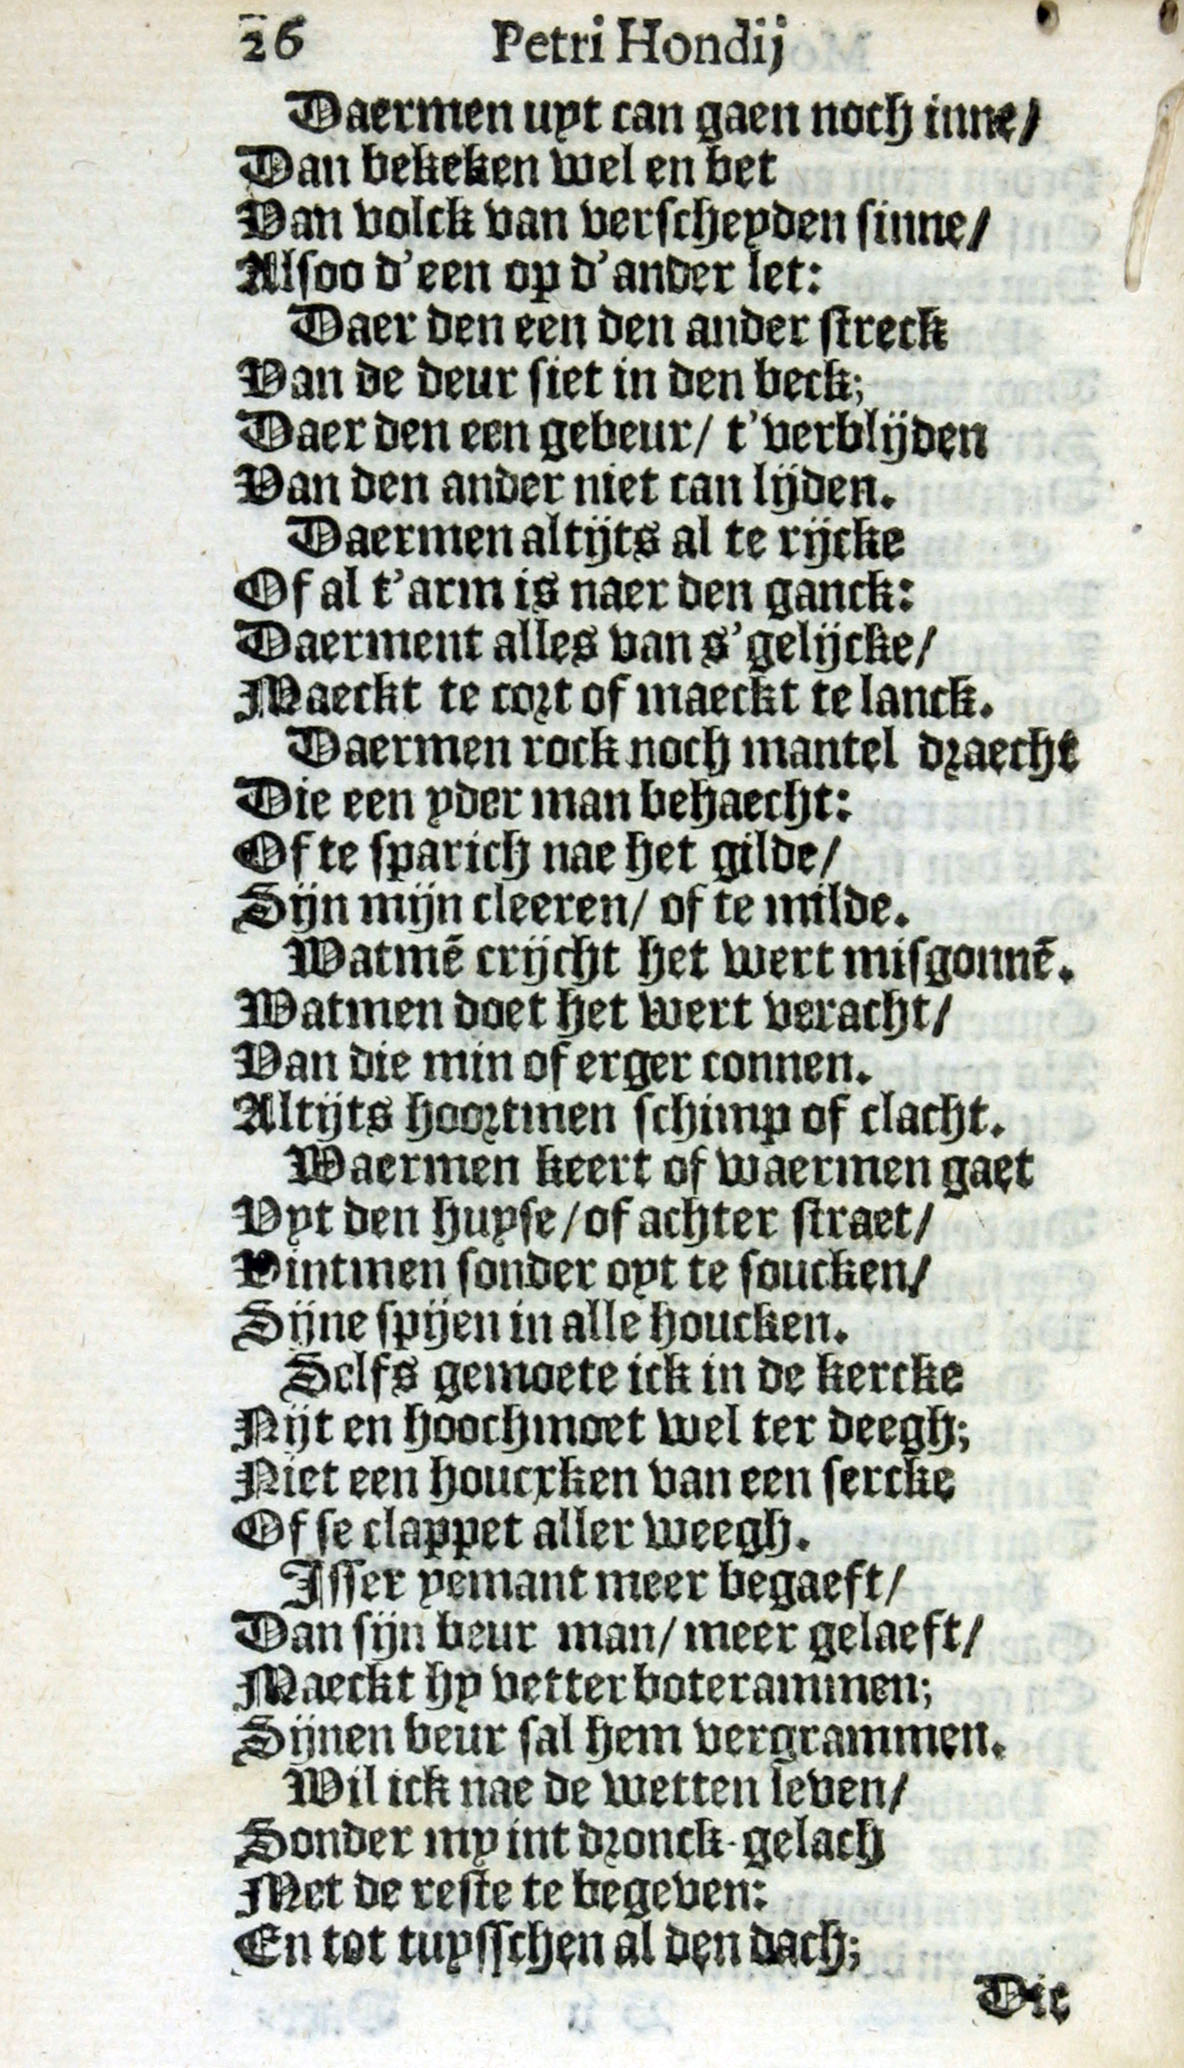 26 Petri Hondij
Daermen uyt can gaen noch inne/
Dan bekeken wel en bet
Van volck van verscheyden sinne/
Alsoo d'een op d'ander let:
Daer den een den ander streck
Van de deur siet in den beck;
Daer den een gebeur/ t'verblijden
Van den ander niet can lijden.
Daermen altijts al te rijcke
Of al t'arm is naer den ganck:
Daerment alles van s'gelijcke/
Maeckt te cort of maeckt te lanck.
Daermen rock noch mantel draecht
Die een yder man behaecht:
Of te sparich nae het gilde/
Sijn mijn cleeren/ of te milde.
Watmē crijcht het wert misgonnē.
Watmen doet het wert veracht/
Van die min of erger connen.
Altijts hoortmen schimp of clacht.
Waermen keert of waermen gaet
Vyt den huyse/ of achter straet/
Vintmen sonder oyt te soucken/
Sijne spijen in alle houcken.
Selfs gemoete ick in de kercke
Nijt en hoochmoet wel ter deegh;
Niet een houcxken van een sercke
Of se clappet aller weegh.
Isser yemant meer begaeft/
Dan sijn beur man/ meer gelaeft/
Maeckt hy vetter boterammen;
Sijnen beur sal hem vergrammen.
Wil ick nae de wetten leven/
Sonder my int dronck-gelach
Met de reste te begeven:
En tot tuysschen al den dach;
Die